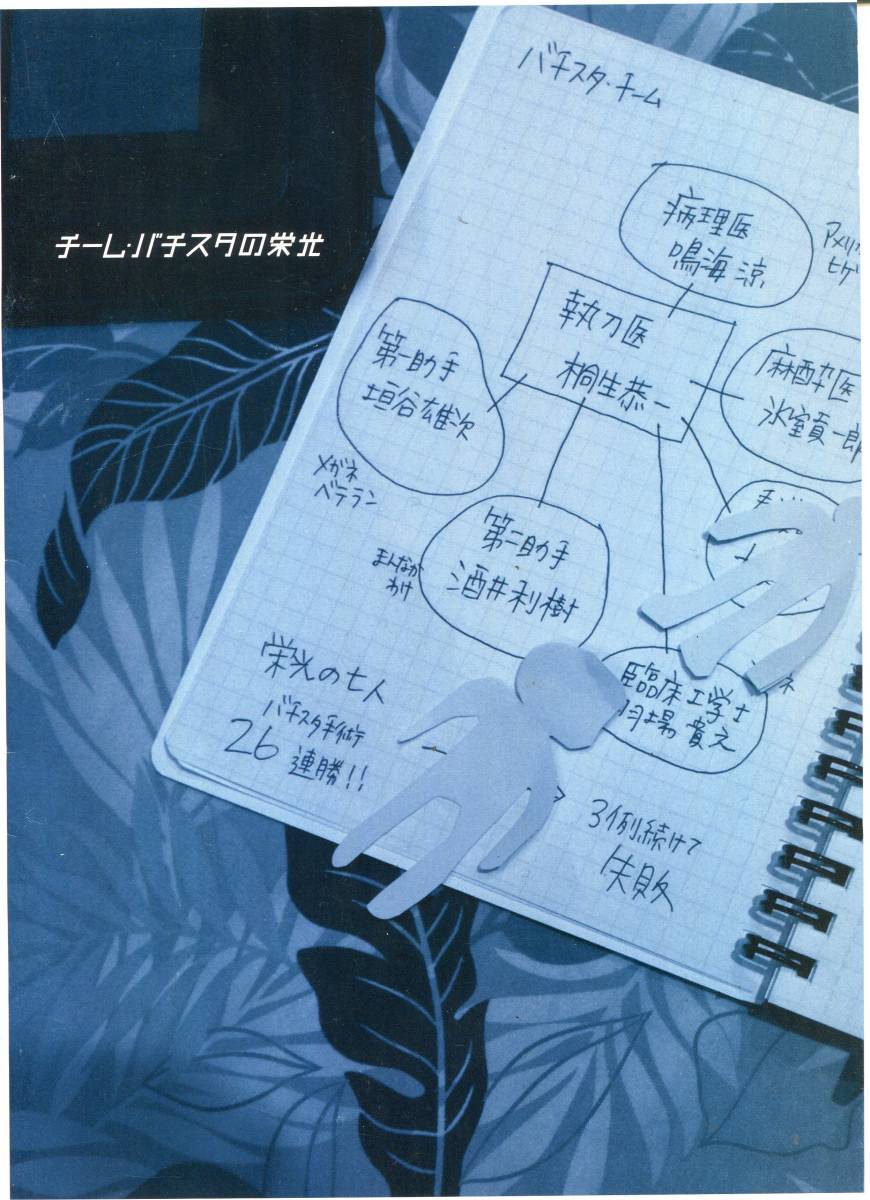 バチスタ・チーム
チーム・バチスタの栄光
病理医
鳴海 涼
執刀医
桐生恭一
第一助手
垣谷雄次
麻酔医
氷室貢一郎
メガネ
ベテラン
第二助手
酒井利樹
まんなか
わけ
臨床工学士
羽場貴之
栄光の七人
バチスタ手術
26連勝!!
3例続けて
失敗